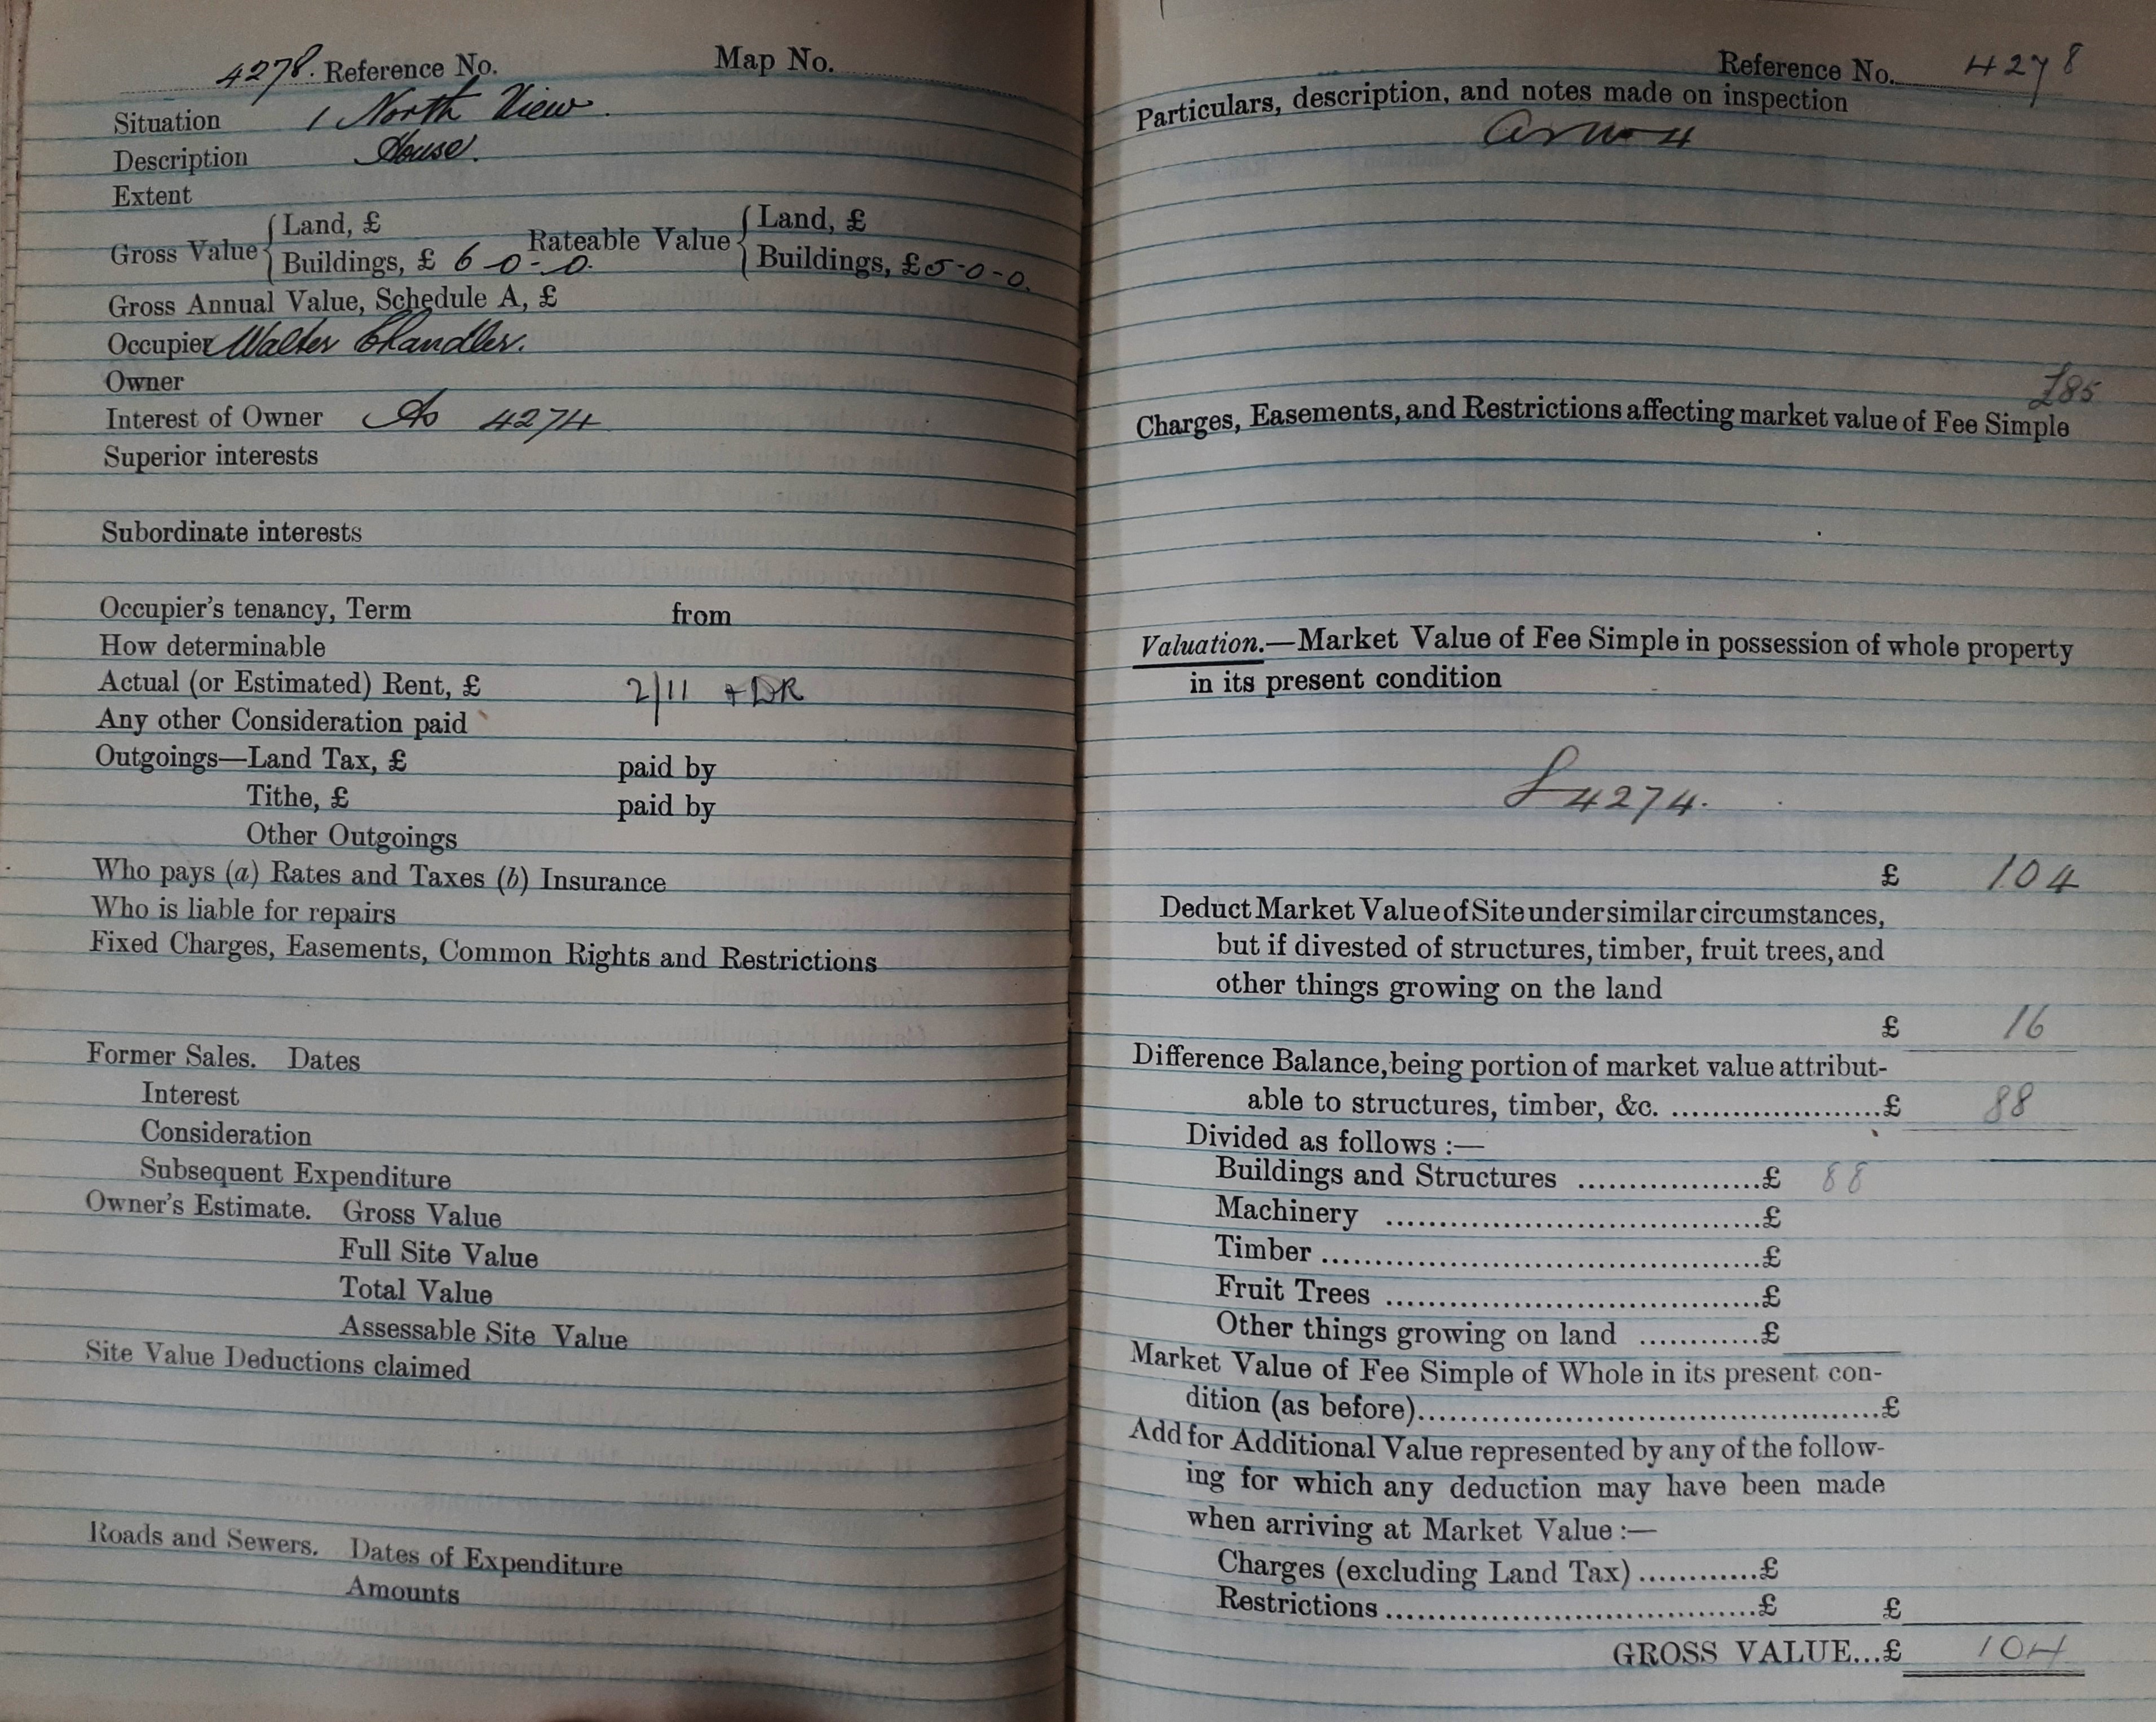 4278. Reference No. Map No.
Situation 1 North View.
Description House.
Extent
Gross Value { Land, £ Rateable Value { Land, £
Buildings, £ 6-0-0. Buildings, £5-0-0.
Gross Annual Value, Schedule A, £
Occupier Walter Chandler.
Owner
Interest of Owner As 4274
Superior interests
Subordinate interests
Occupier's tenancy, Term from
How determinable
Actual (or Estimated) Rent, £ 2/11 + DR
Any other Consideration paid
Outgoings—Land Tax, £ paid by
Tithe, £ paid by
Other Outgoings
Who pays (a) Rates and Taxes (b) Insurance
Who is liable for repairs
Fixed Charges, Easements, Common Rights and Restrictions
Former Sales. Dates
Interest
Consideration
Subsequent Expenditure
Owner's Estimate. Gross Value
Full Site Value
Total Value
Assessable Site Value
Site Value Deductions claimed
Roads and Sewers. Dates of Expenditure
Amounts
Reference No. 4278
Particulars, description, and notes made on inspection
£85
Charges, Easements, and Restrictions affecting market value of Fee Simple
Valuation.—Market Value of Fee Simple in possession of whole property
in its present condition
4274.
£ 104
Deduct Market Value of Site under similar circumstances,
but if divested of structures, timber, fruit trees, and
other things growing on the land
£ 16
Difference Balance, being portion of market value attribut-
able to structures, timber, &c. ......................£ 88
Divided as follows :—
Buildings and Structures ...................£ 88
Machinery ......................................£
Timber ............................................£
Fruit Trees ......................................£
Other things growing on land ............£
Market Value of Fee Simple of Whole in its present con-
dition (as before)................................................£
Add for Additional Value represented by any of the follow-
ing for which any deduction may have been made
when arriving at Market Value :—
Charges (excluding Land Tax) ............£
Restrictions ......................................£ £
GROSS VALUE...£ 104